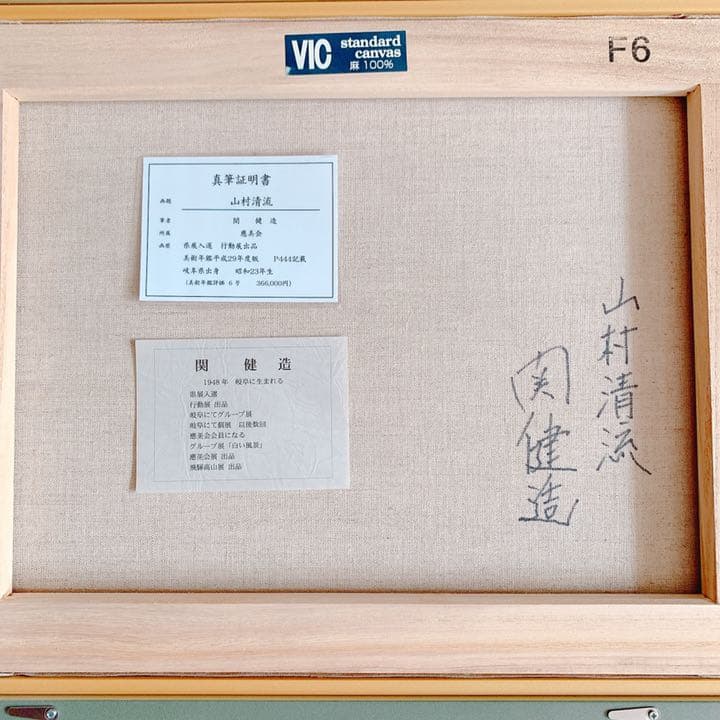 VIC standard
canvas
麻 100%
F6
真筆証明書
画題 山村清流
筆者 関 健 造
所属 應美会
画歴 県展入選 行動展出品
美術年鑑平成29年度版 P444記載
岐阜県出身 昭和23年生
(美術年鑑評価 6号 366,000円)
関 健 造
1948年 岐阜に生まれる
県展入選
行動展 出品
岐阜にてグループ展
岐阜にて個展 以後数回
應美会会員になる
グループ展「白い風景」
應美会展 出品
飛騨高山展 出品
山村清流
関健造